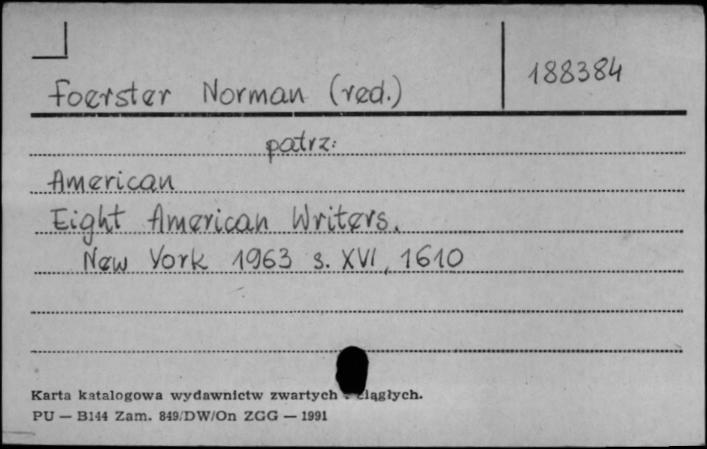 Foerster Norman (red.)
188384
patrz:
American
Eight American Writers.
New York 1963 s. XVI, 1610
Karta katalogowa wydawnictw zwartych ciągłych.
PU — B144 Zam. 849/DW/On ZGG — 1991